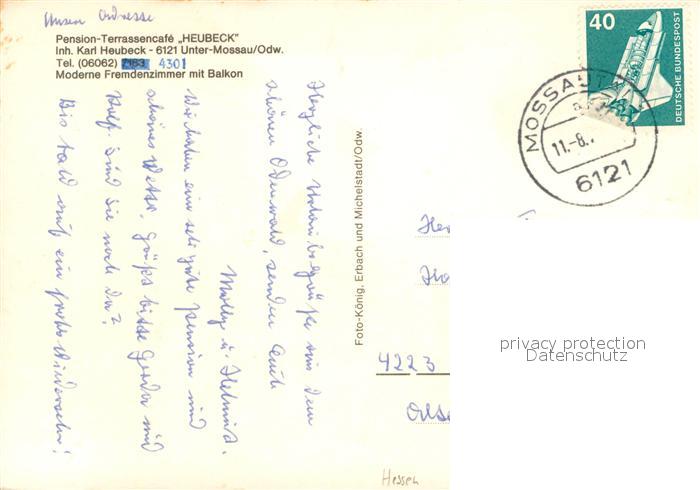 Unsere Adresse
Pension-Terrassencafé „HEUBECK"
Inh. Karl Heubeck - 6121 Unter-Mossau/Odw.
Tel. (06062) 7163 4301
Moderne Fremdenzimmer mit Balkon
Herzliche Urlaubsgrüße aus dem
schönen Odenwald, senden Euch
Molly u. Helmut.
Wir haben eine sehr gute Pension und
schönes Wetter. Grüßt bitte Gerda und
Rolf. Sind Sie noch da?
Bis bald auf ein frohes Wiedersehn!
Foto-König, Erbach und Michelstadt/Odw.
40
DEUTSCHE BUNDESPOST
MOSSAUTAL
11.-8.
6121
4223
Hessen
privacy protection
Datenschutz